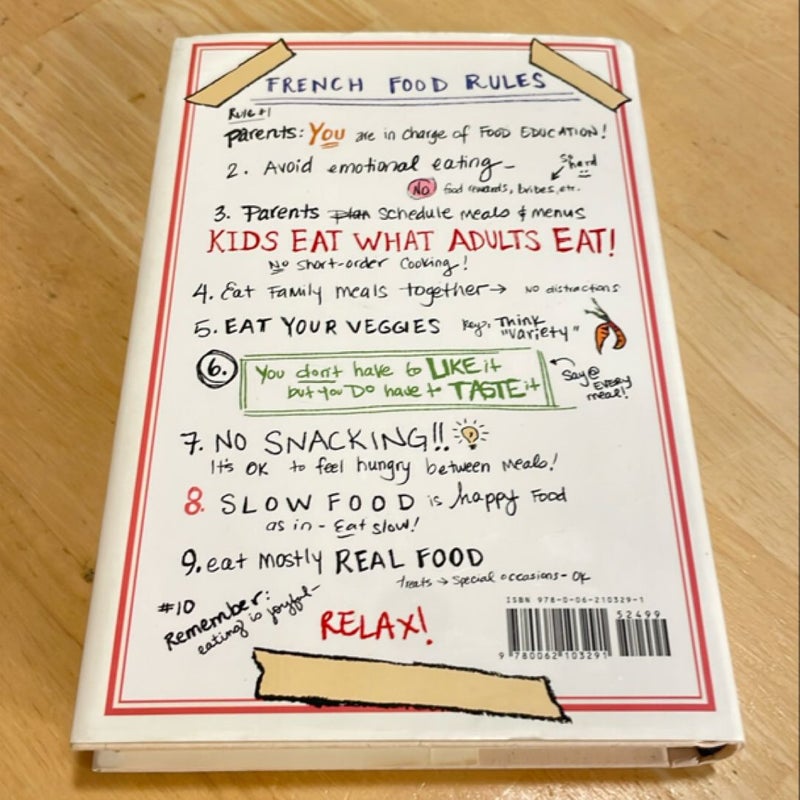 FRENCH FOOD RULES
Rule #1
parents: You are in charge of FOOD EDUCATION!
2. Avoid emotional eating -
So hard
NO food rewards, bribes, etc.
3. Parents plan schedule meals & menus
KIDS EAT WHAT ADULTS EAT!
No short-order cooking!
4. Eat Family meals together → NO distractions
5. EAT YOUR VEGGIES Key: Think
"Variety"
6. You don't have to LIKE it
but you DO have to TASTE it
Say @
EVERY
meal!
7. NO SNACKING!!
It's OK to feel hungry between meals!
8. SLOW FOOD is happy Food
as in - Eat slow!
9. eat mostly REAL FOOD
treats → Special occasions - OK
#10
Remember:
eating is joyful -
RELAX!
ISBN 978-0-06-210329-1
52499
9 780062 103291